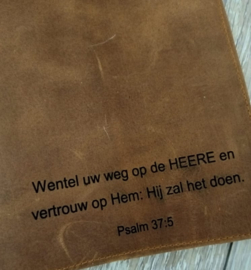 Wentel uw weg op de HEERE en
vertrouw op Hem: Hij zal het doen.
Psalm 37:5